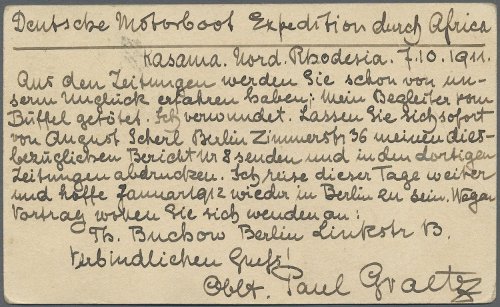 Deutsche Motorboot Expedition durch Africa
Kasama. Nord. Rhodesia. 7.10.1911.
Aus den Zeitungen werden Sie schon von un-
serm Unglück erfahren haben; Mein Begleiter vom
Büffel getötet. Ich verwundet. Lassen Sie sich sofort
von August Scherl Berlin Zimmerstr 36 meinen dies-
bezüglichen Bericht Nr 8 senden und in den dortigen
Zeitungen abdrucken. Ich reise dieser Tage weiter
und hoffe Januar 1912 wieder in Berlin zu sein. Wegen
Vortrag wollen Sie sich wenden an:
Th. Buchow Berlin Linkstr 13.
Verbindlichen Gruß!
Oblt. Paul Graetz